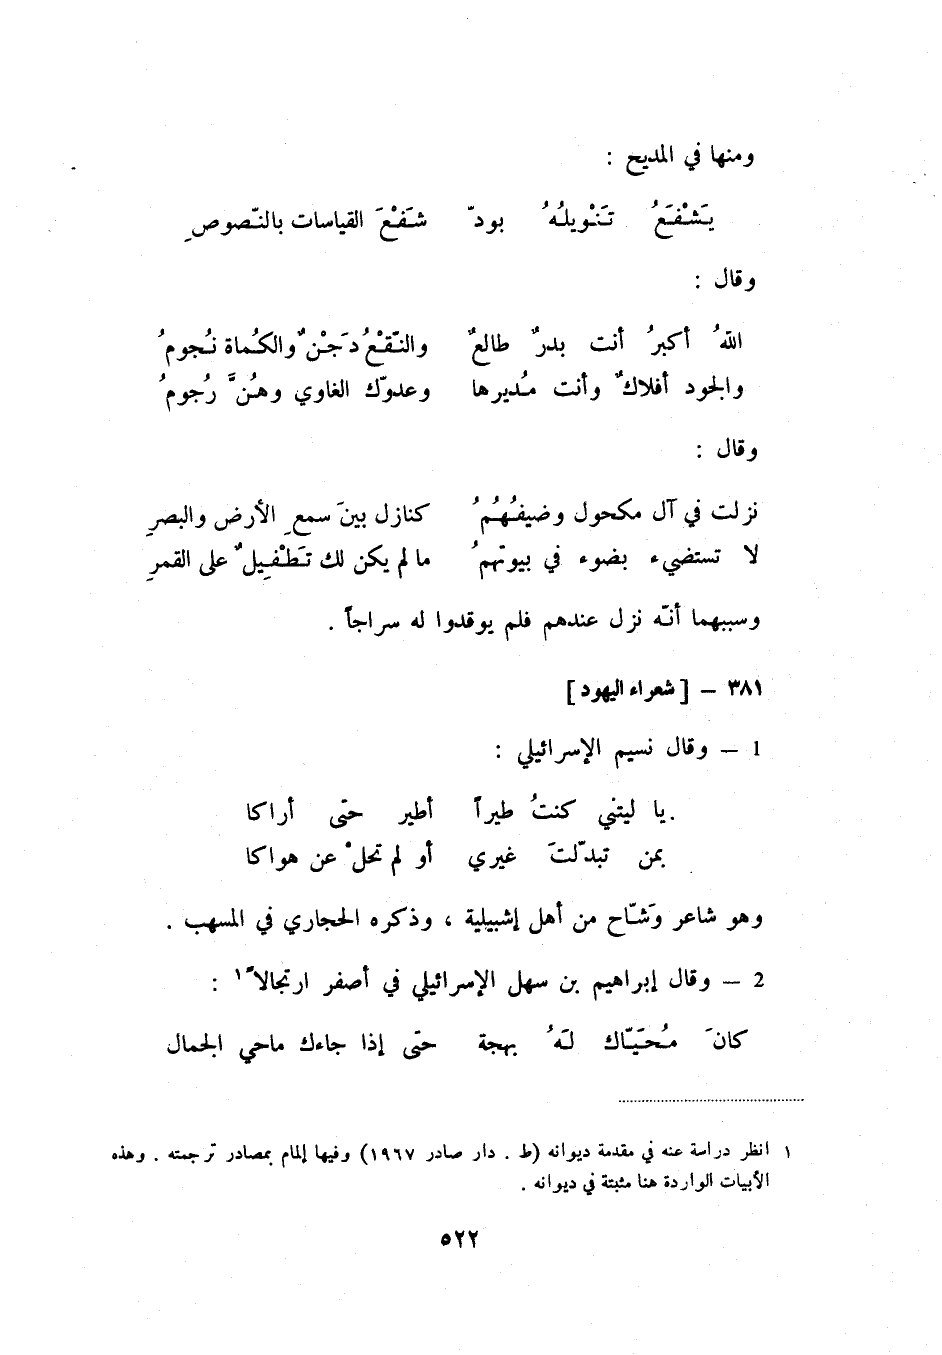 ومنها في المديح :
يَشْفَعُ تَنْويلُهُ بودّ شَفْعَ القياسات بالنّصوصِ
وقال :
اللهُ أكبرُ أنت بدرٌ طالعٌ والنّقْعُ دَجْنٌ والكُماة نُجومُ
والجود أفلاكٌ وأنت مُديرها وعدوّك الغاوي وهُنَّ رُجومُ
وقال :
نزلت في آل مكحول وضيفُهُمُ كنازل بينَ سمعِ الأرض والبصرِ
لا تستضيء بضوء في بيوتهمُ ما لم يكن لك تَطْفيلٌ على القمرِ
وسببهما أنّه نزل عندهم فلم يوقدوا له سراجاً .
٣٨١ – [ شعراء اليهود ]
1 – وقال نسيم الإسرائيلي :
يا ليتني كنتُ طيراً أطير حتّى أراكا
بمن تبدّلتَ غيري أو لم تحلْ عن هواكا
وهو شاعر وَشّاح من أهل إشبيلية ، وذكره الحجاري في المسهب .
2 – وقال إبراهيم بن سهل الإسرائيلي في أصفر ارتجالاً ١ :
كانَ مُحَيّاك لَهُ بهجة حتّى إذا جاءك ماحي الجمال
١ انظر دراسة عنه في مقدمة ديوانه (ط . دار صادر ١٩٦٧) وفيها إلمام بمصادر ترجمته . وهذه
الأبيات الواردة هنا مثبتة في ديوانه .
٥٢٢